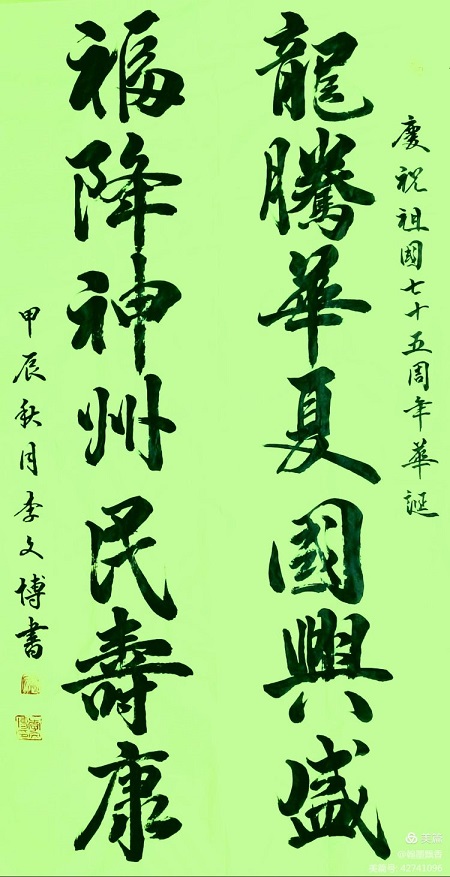 慶祝祖國七十五周年華誕
龍騰華夏國興盛
福降神州民壽康
甲辰秋月李文博書
美篇
美篇号: 42741096